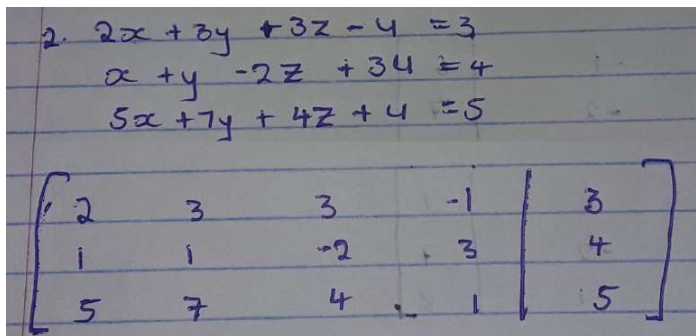 2. 2x + 3y + 3z - u = 3
x + y - 2z + 3u = 4
5x + 7y + 4z + u = 5
2 3 3 -1 | 3
1 1 -2 3 | 4
5 7 4 1 | 5